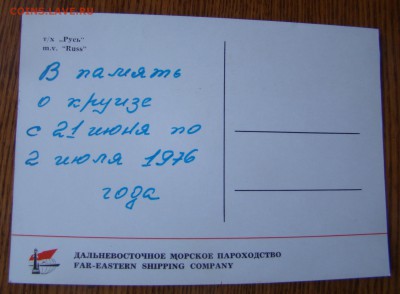 COINS.LAVE.RU
т/х „Русь"
m.v. "Russ"
В память
о круизе
с 21 июня по
2 июля 1976
года
ДАЛЬНЕВОСТОЧНОЕ МОРСКОЕ ПАРОХОДСТВО
FAR-EASTERN SHIPPING COMPANY